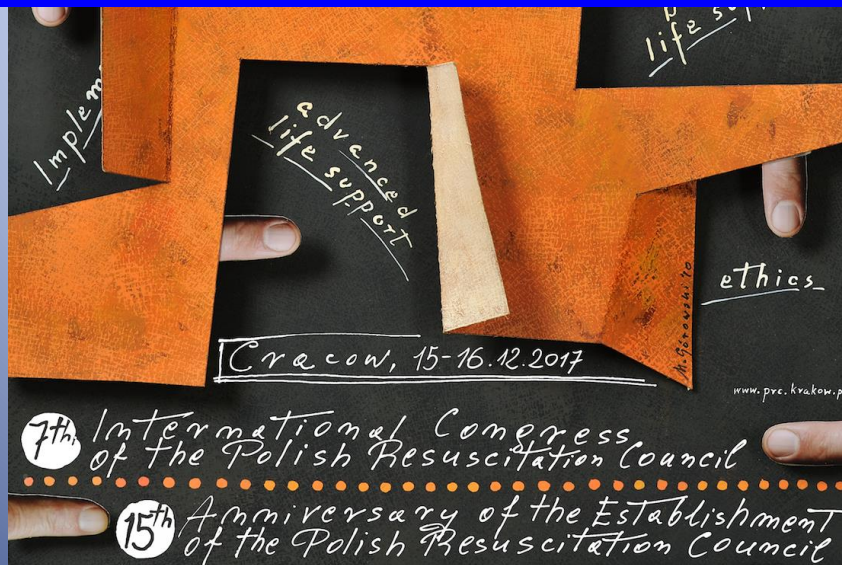 life su
Implem
advanced
life support
ethics
M. Górowski '10
Cracow, 15-16.12.2017
www.prc.krakow.p
7th International Congress
of the Polish Resuscitation Council
15th Anniversary of the Establishment
of the Polish Resuscitation Council